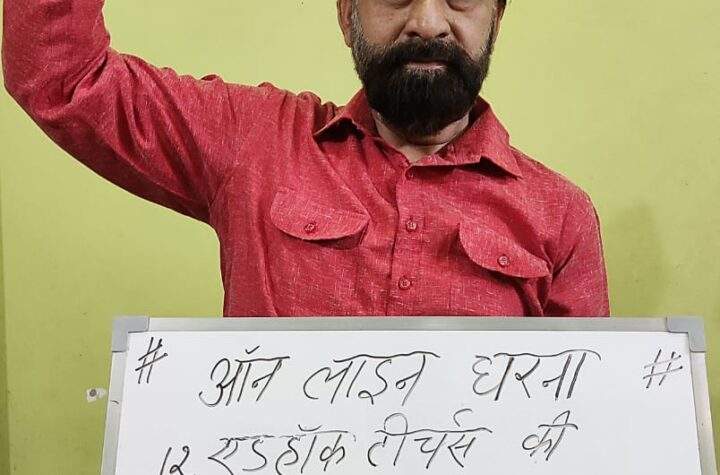 # ऑन लाइन धरना #
12 एडहॉक टीचर्स की